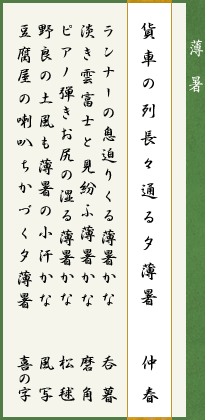 薄暑
貨車の列長々通る夕薄暑 仲春
ランナーの息迫りくる薄暑かな 呑暮
淡き雲富士と見紛ふ薄暑かな 磨角
ピアノ弾きお尻の湿る薄暑かな 松毬
野良の土風も薄暑の小汗かな 風写
豆腐屋の喇叭ちかづく夕薄暑 喜の字